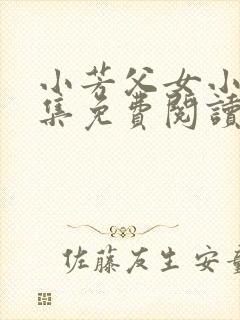 小芳父女小
集免費閱讀
佐藤友生 安童